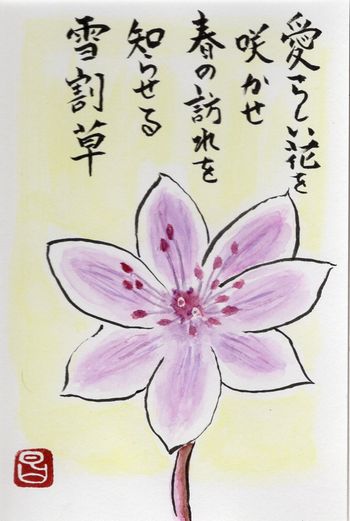 愛らしい花を
咲かせ
春の訪れを
知らせる
雪割草